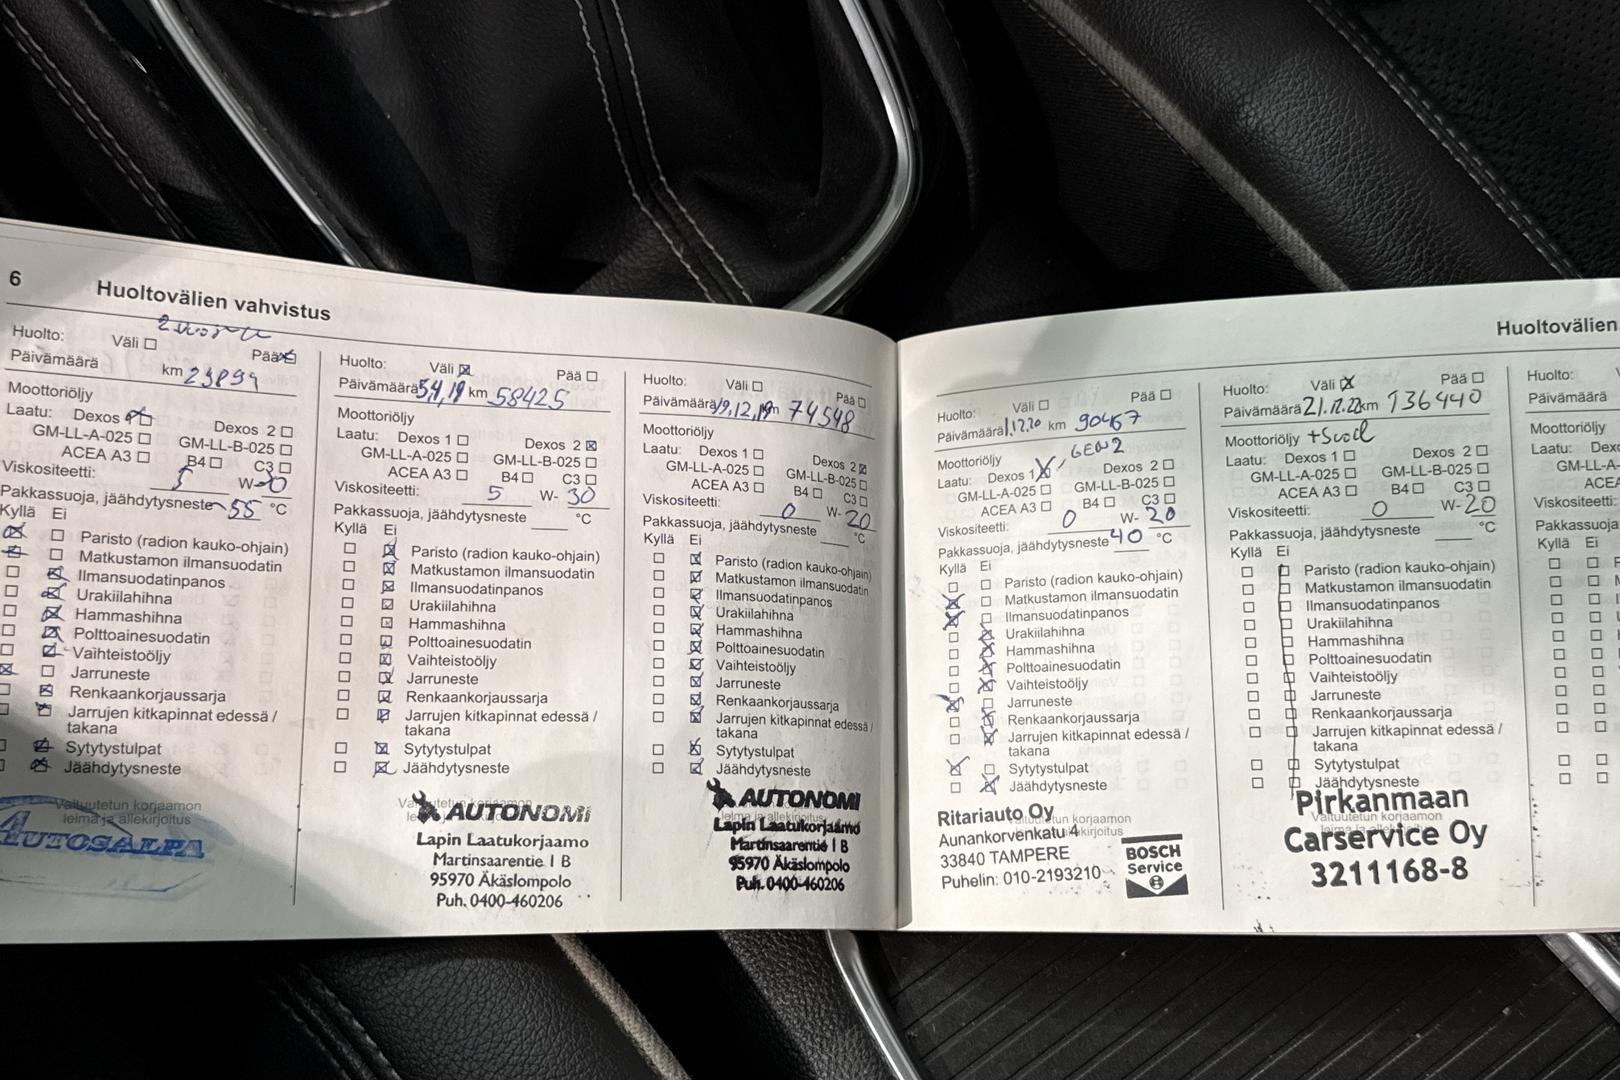 6
Huoltovälien vahvistus
Huolto: Väli Pää
Päivämäärä km 23899
Moottoriöljy
Laatu: Dexos 1 Dexos 2
GM-LL-A-025 GM-LL-B-025
ACEA A3 B4 C3
Viskositeetti: 5 W-30
Pakkassuoja, jäähdytysneste -55 °C
Kyllä Ei
Paristo (radion kauko-ohjain)
Matkustamon ilmansuodatin
Ilmansuodatinpanos
Urakiilahihna
Hammashihna
Polttoainesuodatin
Vaihteistoöljy
Jarruneste
Renkaankorjaussarja
Jarrujen kitkapinnat edessä /
takana
Sytytystulpat
Jäähdytysneste
Valtuutetun korjaamon
leima ja allekirjoitus
AUTOSALPA
Huolto: Väli Pää
Päivämäärä 5,4,19 km 58425
Moottoriöljy
Laatu: Dexos 1 Dexos 2
GM-LL-A-025 GM-LL-B-025
ACEA A3 B4 C3
Viskositeetti: 5 W- 30
Pakkassuoja, jäähdytysneste °C
Kyllä Ei
Paristo (radion kauko-ohjain)
Matkustamon ilmansuodatin
Ilmansuodatinpanos
Urakiilahihna
Hammashihna
Polttoainesuodatin
Vaihteistoöljy
Jarruneste
Renkaankorjaussarja
Jarrujen kitkapinnat edessä /
takana
Sytytystulpat
Jäähdytysneste
AUTONOMI
Lapin Laatukorjaamo
Martinsaarentie 1 B
95970 Äkäslompolo
Puh. 0400-460206
Huolto: Väli Pää
Päivämäärä 19,12,19 km 74548
Moottoriöljy
Laatu: Dexos 1 Dexos 2
GM-LL-A-025 GM-LL-B-025
ACEA A3 B4 C3
Viskositeetti: 0 W- 20
Pakkassuoja, jäähdytysneste °C
Kyllä Ei
Paristo (radion kauko-ohjain)
Matkustamon ilmansuodatin
Ilmansuodatinpanos
Urakiilahihna
Hammashihna
Polttoainesuodatin
Vaihteistoöljy
Jarruneste
Renkaankorjaussarja
Jarrujen kitkapinnat edessä /
takana
Sytytystulpat
Jäähdytysneste
AUTONOMI
Lapin Laatukorjaamo
Martinsaarentie 1 B
95970 Äkäslompolo
Puh. 0400-460206
Huoltovälien
Huolto: Väli Pää
Päivämäärä 1.12.20 km 90467
Moottoriöljy GEN 2
Laatu: Dexos 1 Dexos 2
GM-LL-A-025 GM-LL-B-025
ACEA A3 B4 C3
Viskositeetti: 0 W- 20
Pakkassuoja, jäähdytysneste 40 °C
Kyllä Ei
Paristo (radion kauko-ohjain)
Matkustamon ilmansuodatin
Ilmansuodatinpanos
Urakiilahihna
Hammashihna
Polttoainesuodatin
Vaihteistoöljy
Jarruneste
Renkaankorjaussarja
Jarrujen kitkapinnat edessä /
takana
Sytytystulpat
Jäähdytysneste
Ritariauto Oy
Aunankorvenkatu 4
33840 TAMPERE
Puhelin: 010-2193210
BOSCH
Service
Huolto: Väli Pää
Päivämäärä 21.12.22 km 136440
Moottoriöljy
Laatu: Dexos 1 Dexos 2
GM-LL-A-025 GM-LL-B-025
ACEA A3 B4 C3
Viskositeetti: 0 W- 20
Pakkassuoja, jäähdytysneste °C
Kyllä Ei
Paristo (radion kauko-ohjain)
Matkustamon ilmansuodatin
Ilmansuodatinpanos
Urakiilahihna
Hammashihna
Polttoainesuodatin
Vaihteistoöljy
Jarruneste
Renkaankorjaussarja
Jarrujen kitkapinnat edessä /
takana
Sytytystulpat
Jäähdytysneste
Pirkanmaan
Carservice Oy
3211168-8
Huolto:
Päivämäärä
Moottoriöljy
Laatu:
GM-LL-A
Viskositeetti:
Pakkassuoja
Kyllä Ei